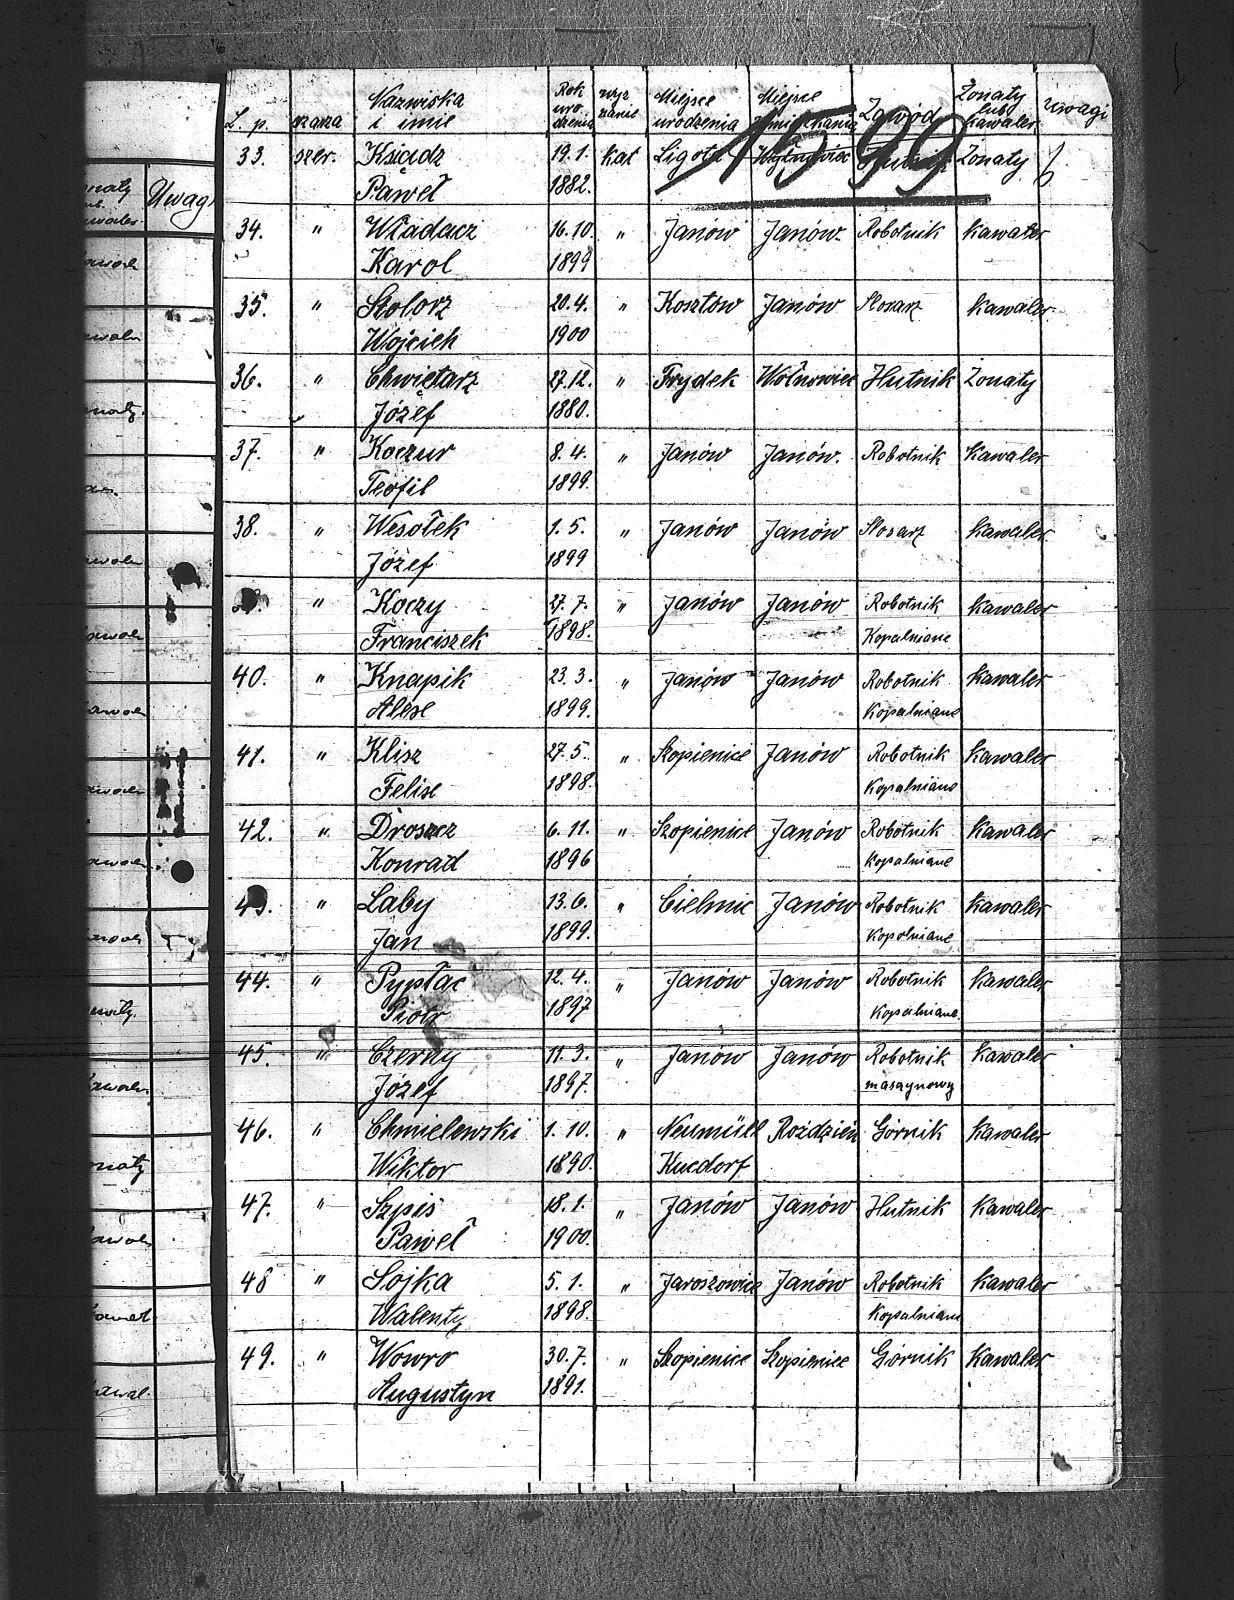 L. p. szarza Nazwiska i imie Rok uro- dzenia wyz nanie Miejsce urodzenia Miejsce Zawód Żonaty lub Kawaler Uwagi
1599
33. szer. Ksiądz 19.1. kat Ligota Żonaty
Paweł 1882.
34. " Władacz 16.10. " Janów Janów. Robotnik Kawaler
Karol 1899
35. " Stolorz 20.4. " Kosztow Janów Slosarz Kawaler
Wojcieh 1900
36. " Chwiętarz 27.12. " Frydek Hutnik Żonaty
Józef 1880.
37. " Koczur 8.4. " Janów Janów. Robotnik Kawaler
Teofil 1899.
38. " Wesołek 1.5. " Janów Janów Slosarz Kawaler
Józef 1899
" Koczy 27.7. " Janów Janów Robotnik Kawaler
Franciszek 1898. Kopalniane
40. " Knapik 23.3. " Janów Janów Robotnik Kawaler
1899. Kopalniane
41. " Klisz 27.5. " Szopienice Janów Robotnik Kawaler
1898. Kopalniane
42. " Droszcz 6.11. " Szopienice Janów Robotnik Kawaler
Konrad 1896 Kopalniane
43. " Laby 13.6. " Cielmic Janów Robotnik Kawaler
Jan 1899. Kopalniane
44. " Pyptac 12.4. " Janów Janów Robotnik Kawaler
Piotr 1897 Kopalniane
45. " Czerny 11.3. " Janów Janów Robotnik Kawaler
Józef 1897. maszynowy
46. " Chmielewski 1.10. " Neumüll Roździeń Górnik Kawaler
Wiktor 1890.
47. " Szpis 18.1. " Janów Janów Hutnik Kawaler
Paweł 1900.
48 " Sojka 5.1. " Jaroszowice Janów Robotnik Kawaler
Walenty 1898. Kopalniane
49. " Wowro 30.7. " Szopienice Szopienice Górnik Kawaler
Augustyn 1891.